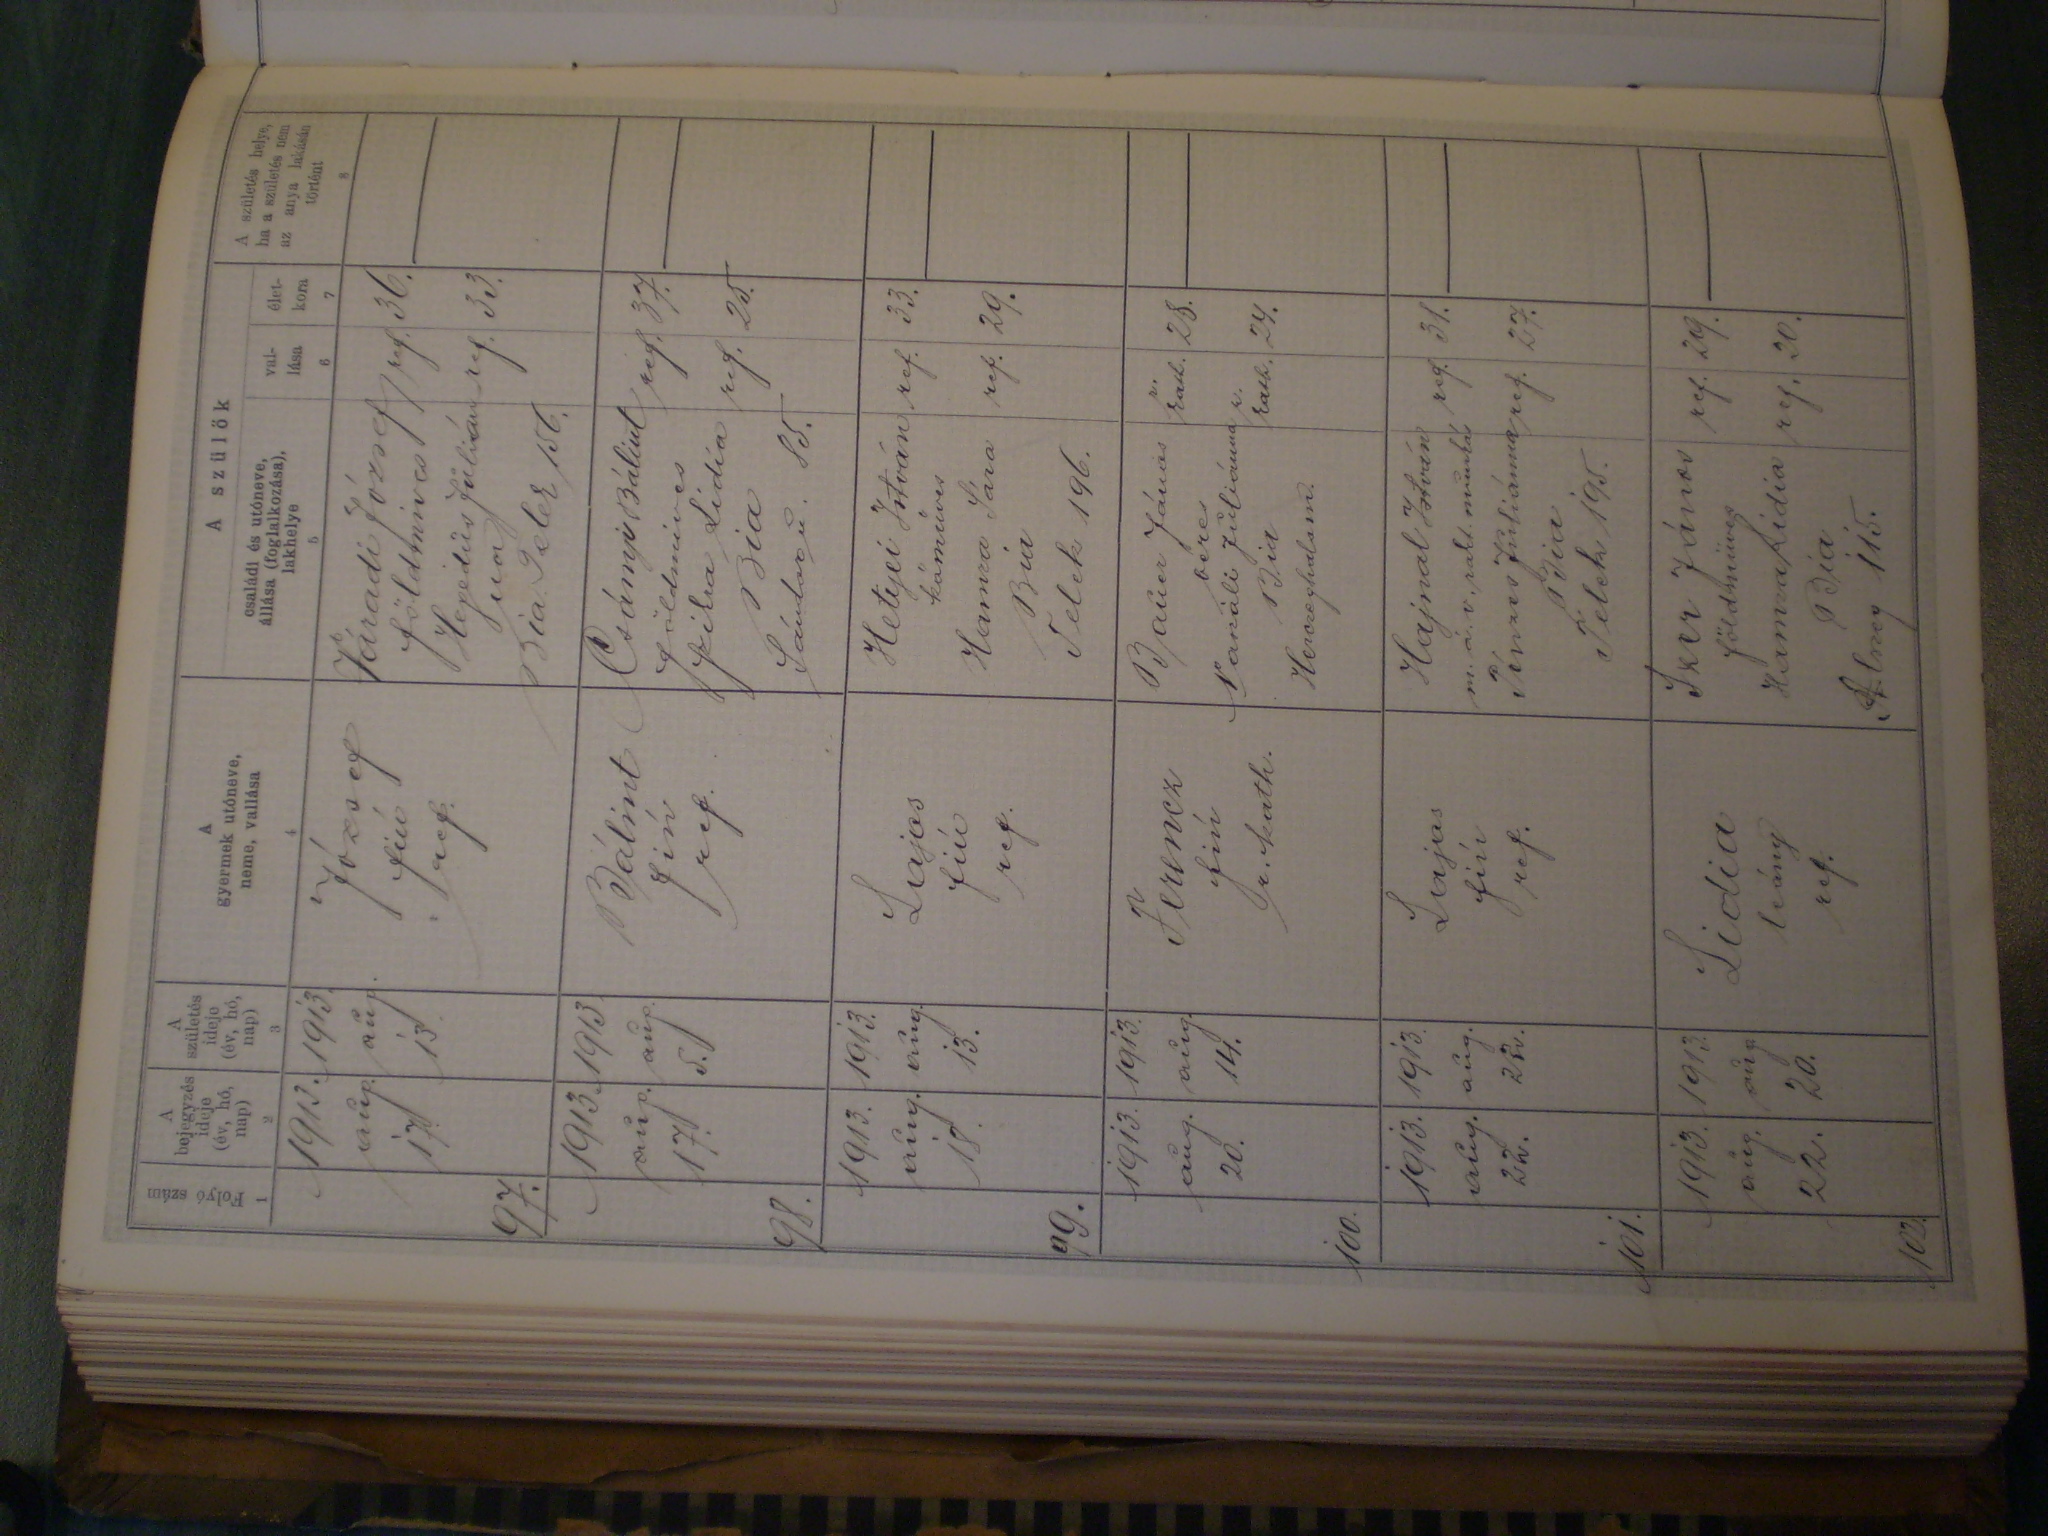 Folyó szám
A bejegyzés ideje (év, hó, nap)
A születés ideje (év, hó, nap)
A gyermek utóneve, neme, vallása
A szülők
családi és utóneve, állása (foglalkozása), lakhelye
val-lása
élet-kora
A születés helye, ha a születés nem az anya lakásán történt
1 2 3 4 5 6 7 8
97.
1913. aug. 17.
1913. aug. 13.
József
fiú
ref.
Váradi József ref. 36.
földmives
Hegedüs Juliánna ref. 33.
Bia Telek 156.
98.
1913. aug. 17.
1913. aug. 5.
Bálint
fiú
ref.
Csányi Bálint ref. 37.
földmives
Lidia ref. 25.
Bia
85.
99.
1913. aug. 18.
1913. aug. 13.
Lajos
fiú
ref.
Hetyei István ref. 33.
kőmüves
Hamza Sára ref. 29.
Bia
Telek 196.
100.
1913. aug. 20.
1913. aug. 14.
Ferencz
fiú
r. kath.
Bauer János r. kath. 28.
béres
Juliánna r. kath. 24.
Bia
Herczeghalom.
101.
1913. aug. 22.
1913. aug.
Lajos
fiú
ref.
Hajnal István ref. 31.
m. á. v. rakt. munkás
Juliánna ref. 27.
Bia
Telek 195.
102.
1913. aug. 22.
1913. aug. 20.
Lidia
leány
ref.
János ref. 29.
földmüves
Hamza Lidia ref. 20.
Bia
115.